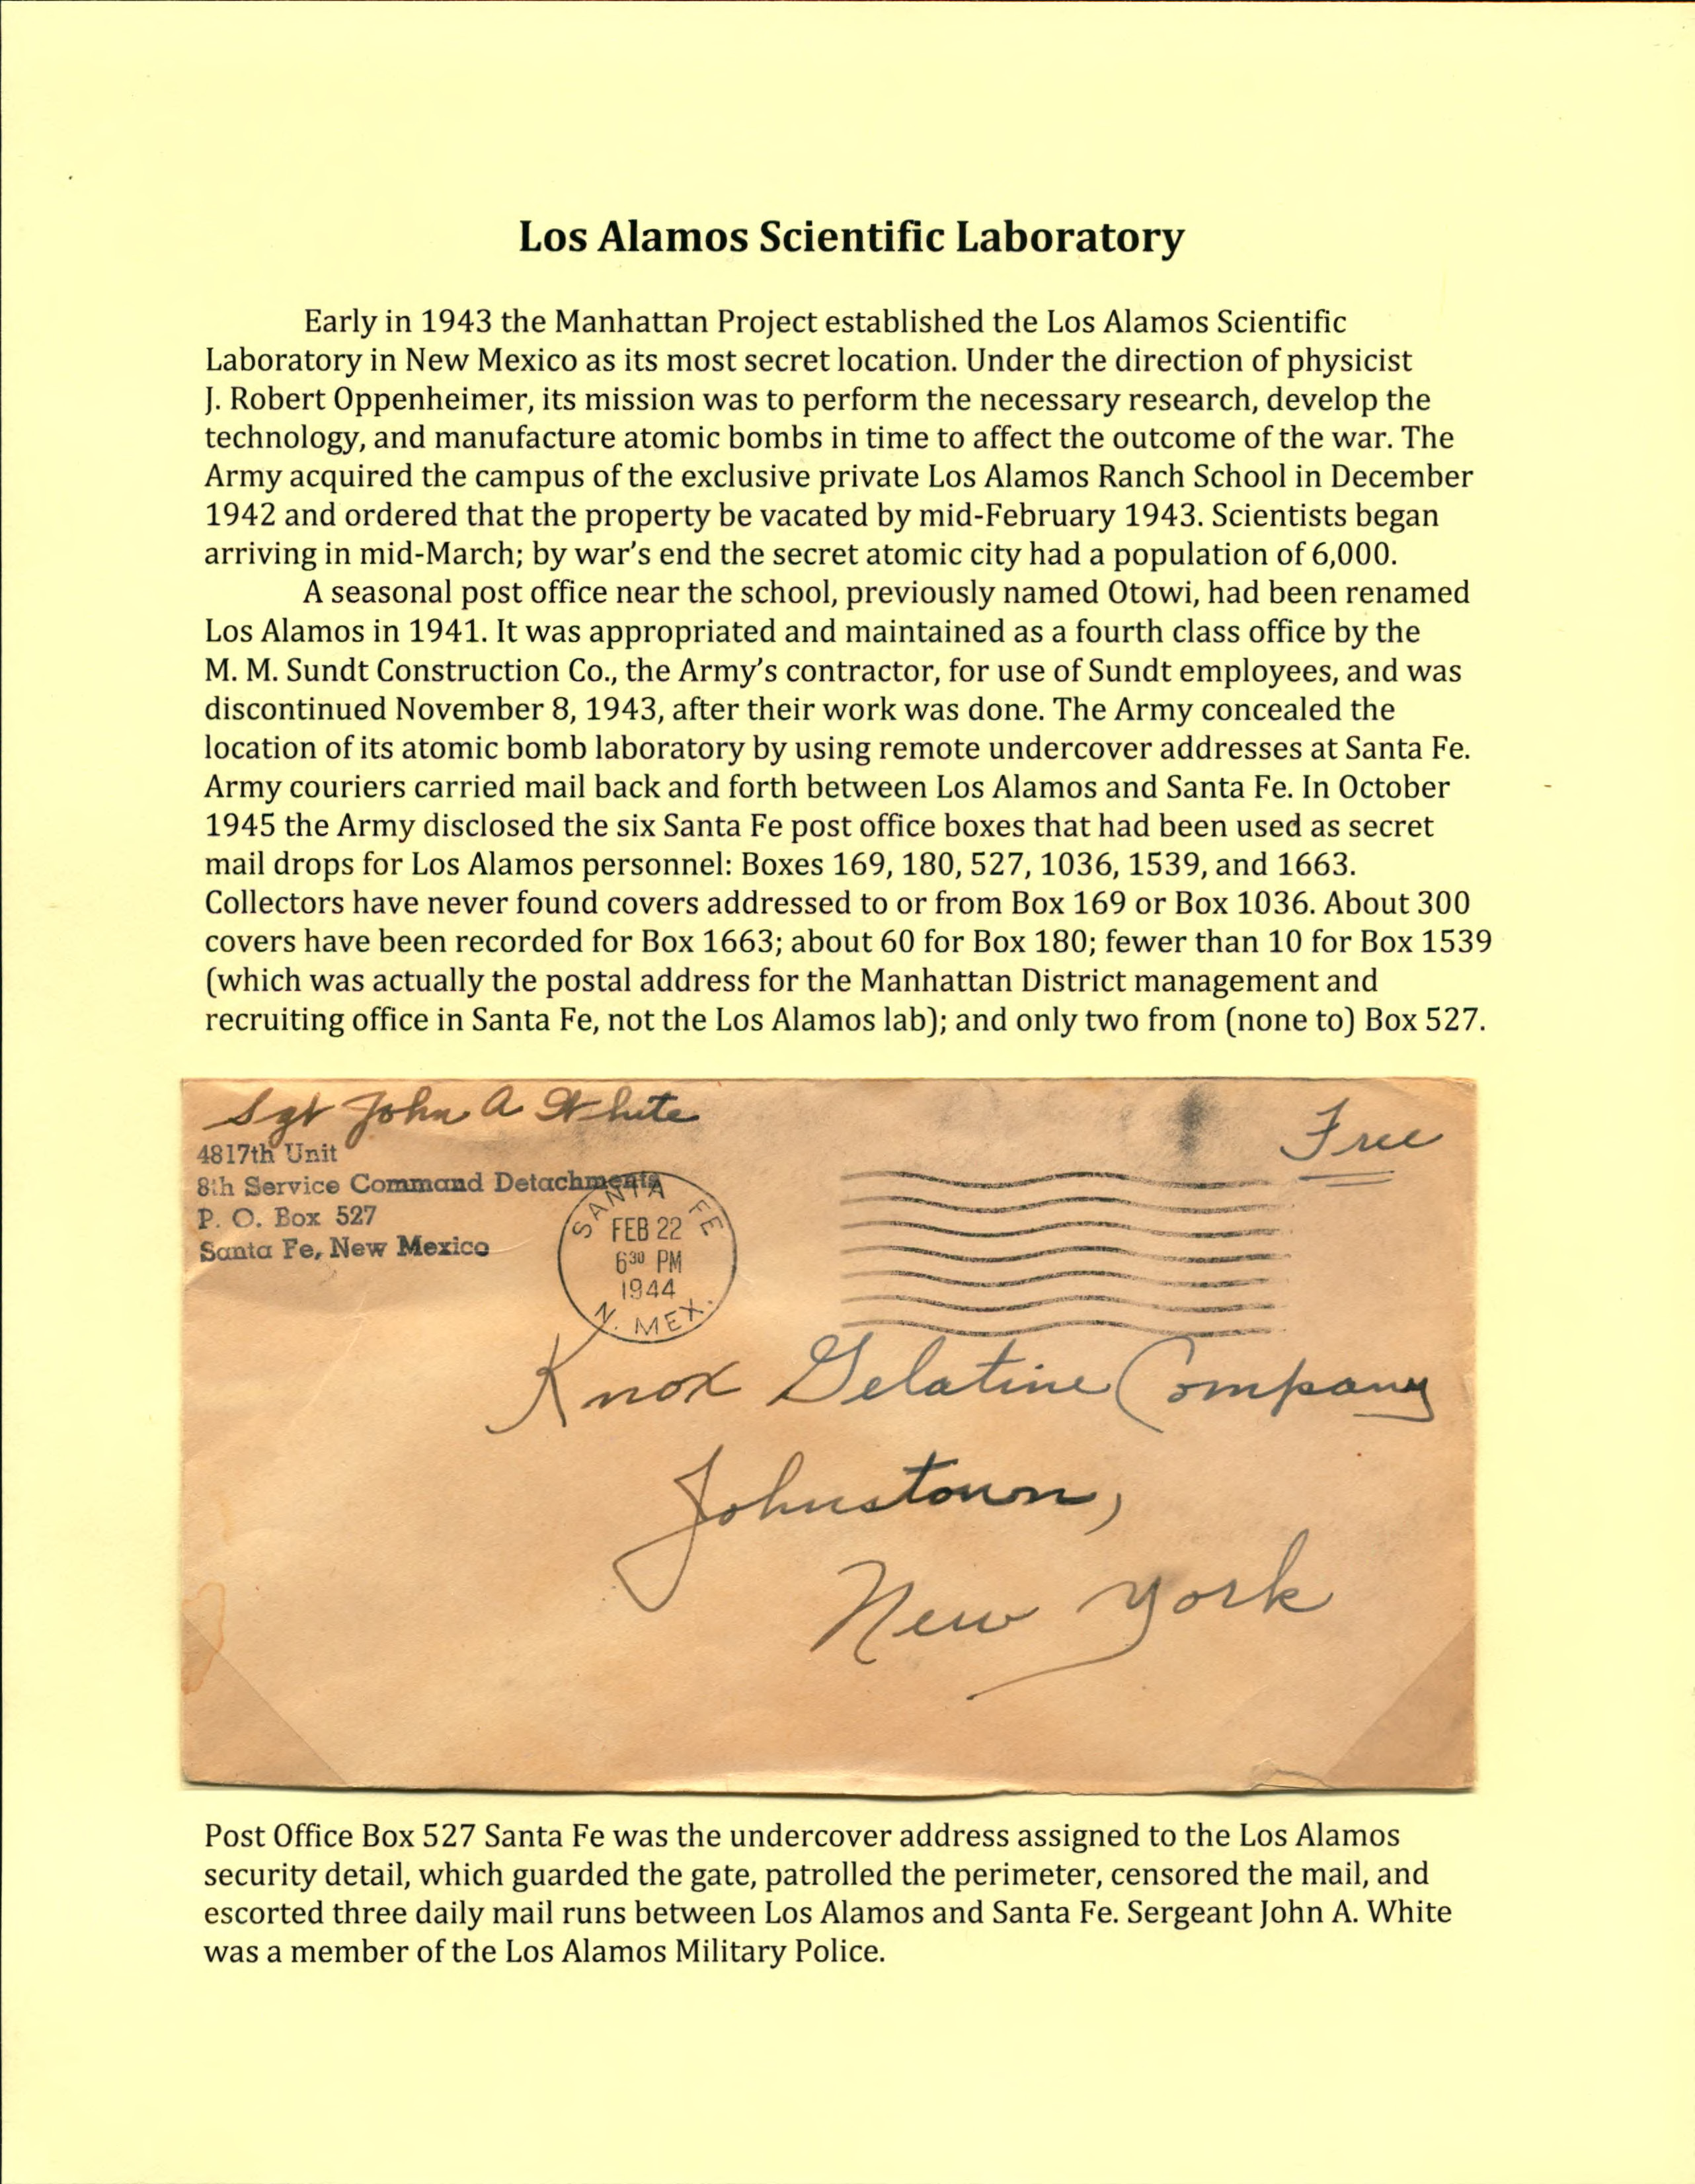 Los Alamos Scientific Laboratory
Early in 1943 the Manhattan Project established the Los Alamos Scientific
Laboratory in New Mexico as its most secret location. Under the direction of physicist
J. Robert Oppenheimer, its mission was to perform the necessary research, develop the
technology, and manufacture atomic bombs in time to affect the outcome of the war. The
Army acquired the campus of the exclusive private Los Alamos Ranch School in December
1942 and ordered that the property be vacated by mid-February 1943. Scientists began
arriving in mid-March; by war's end the secret atomic city had a population of 6,000.
A seasonal post office near the school, previously named Otowi, had been renamed
Los Alamos in 1941. It was appropriated and maintained as a fourth class office by the
M. M. Sundt Construction Co., the Army's contractor, for use of Sundt employees, and was
discontinued November 8, 1943, after their work was done. The Army concealed the
location of its atomic bomb laboratory by using remote undercover addresses at Santa Fe.
Army couriers carried mail back and forth between Los Alamos and Santa Fe. In October
1945 the Army disclosed the six Santa Fe post office boxes that had been used as secret
mail drops for Los Alamos personnel: Boxes 169, 180, 527, 1036, 1539, and 1663.
Collectors have never found covers addressed to or from Box 169 or Box 1036. About 300
covers have been recorded for Box 1663; about 60 for Box 180; fewer than 10 for Box 1539
(which was actually the postal address for the Manhattan District management and
recruiting office in Santa Fe, not the Los Alamos lab); and only two from (none to) Box 527.
Sgt John A White
4817th Unit
8th Service Command Detachments
P. O. Box 527
Santa Fe, New Mexico
Free
SANTA FE
FEB 22
6 30 PM
1944
N. MEX.
Knox Gelatine Company
Johnstown,
New York
Post Office Box 527 Santa Fe was the undercover address assigned to the Los Alamos
security detail, which guarded the gate, patrolled the perimeter, censored the mail, and
escorted three daily mail runs between Los Alamos and Santa Fe. Sergeant John A. White
was a member of the Los Alamos Military Police.